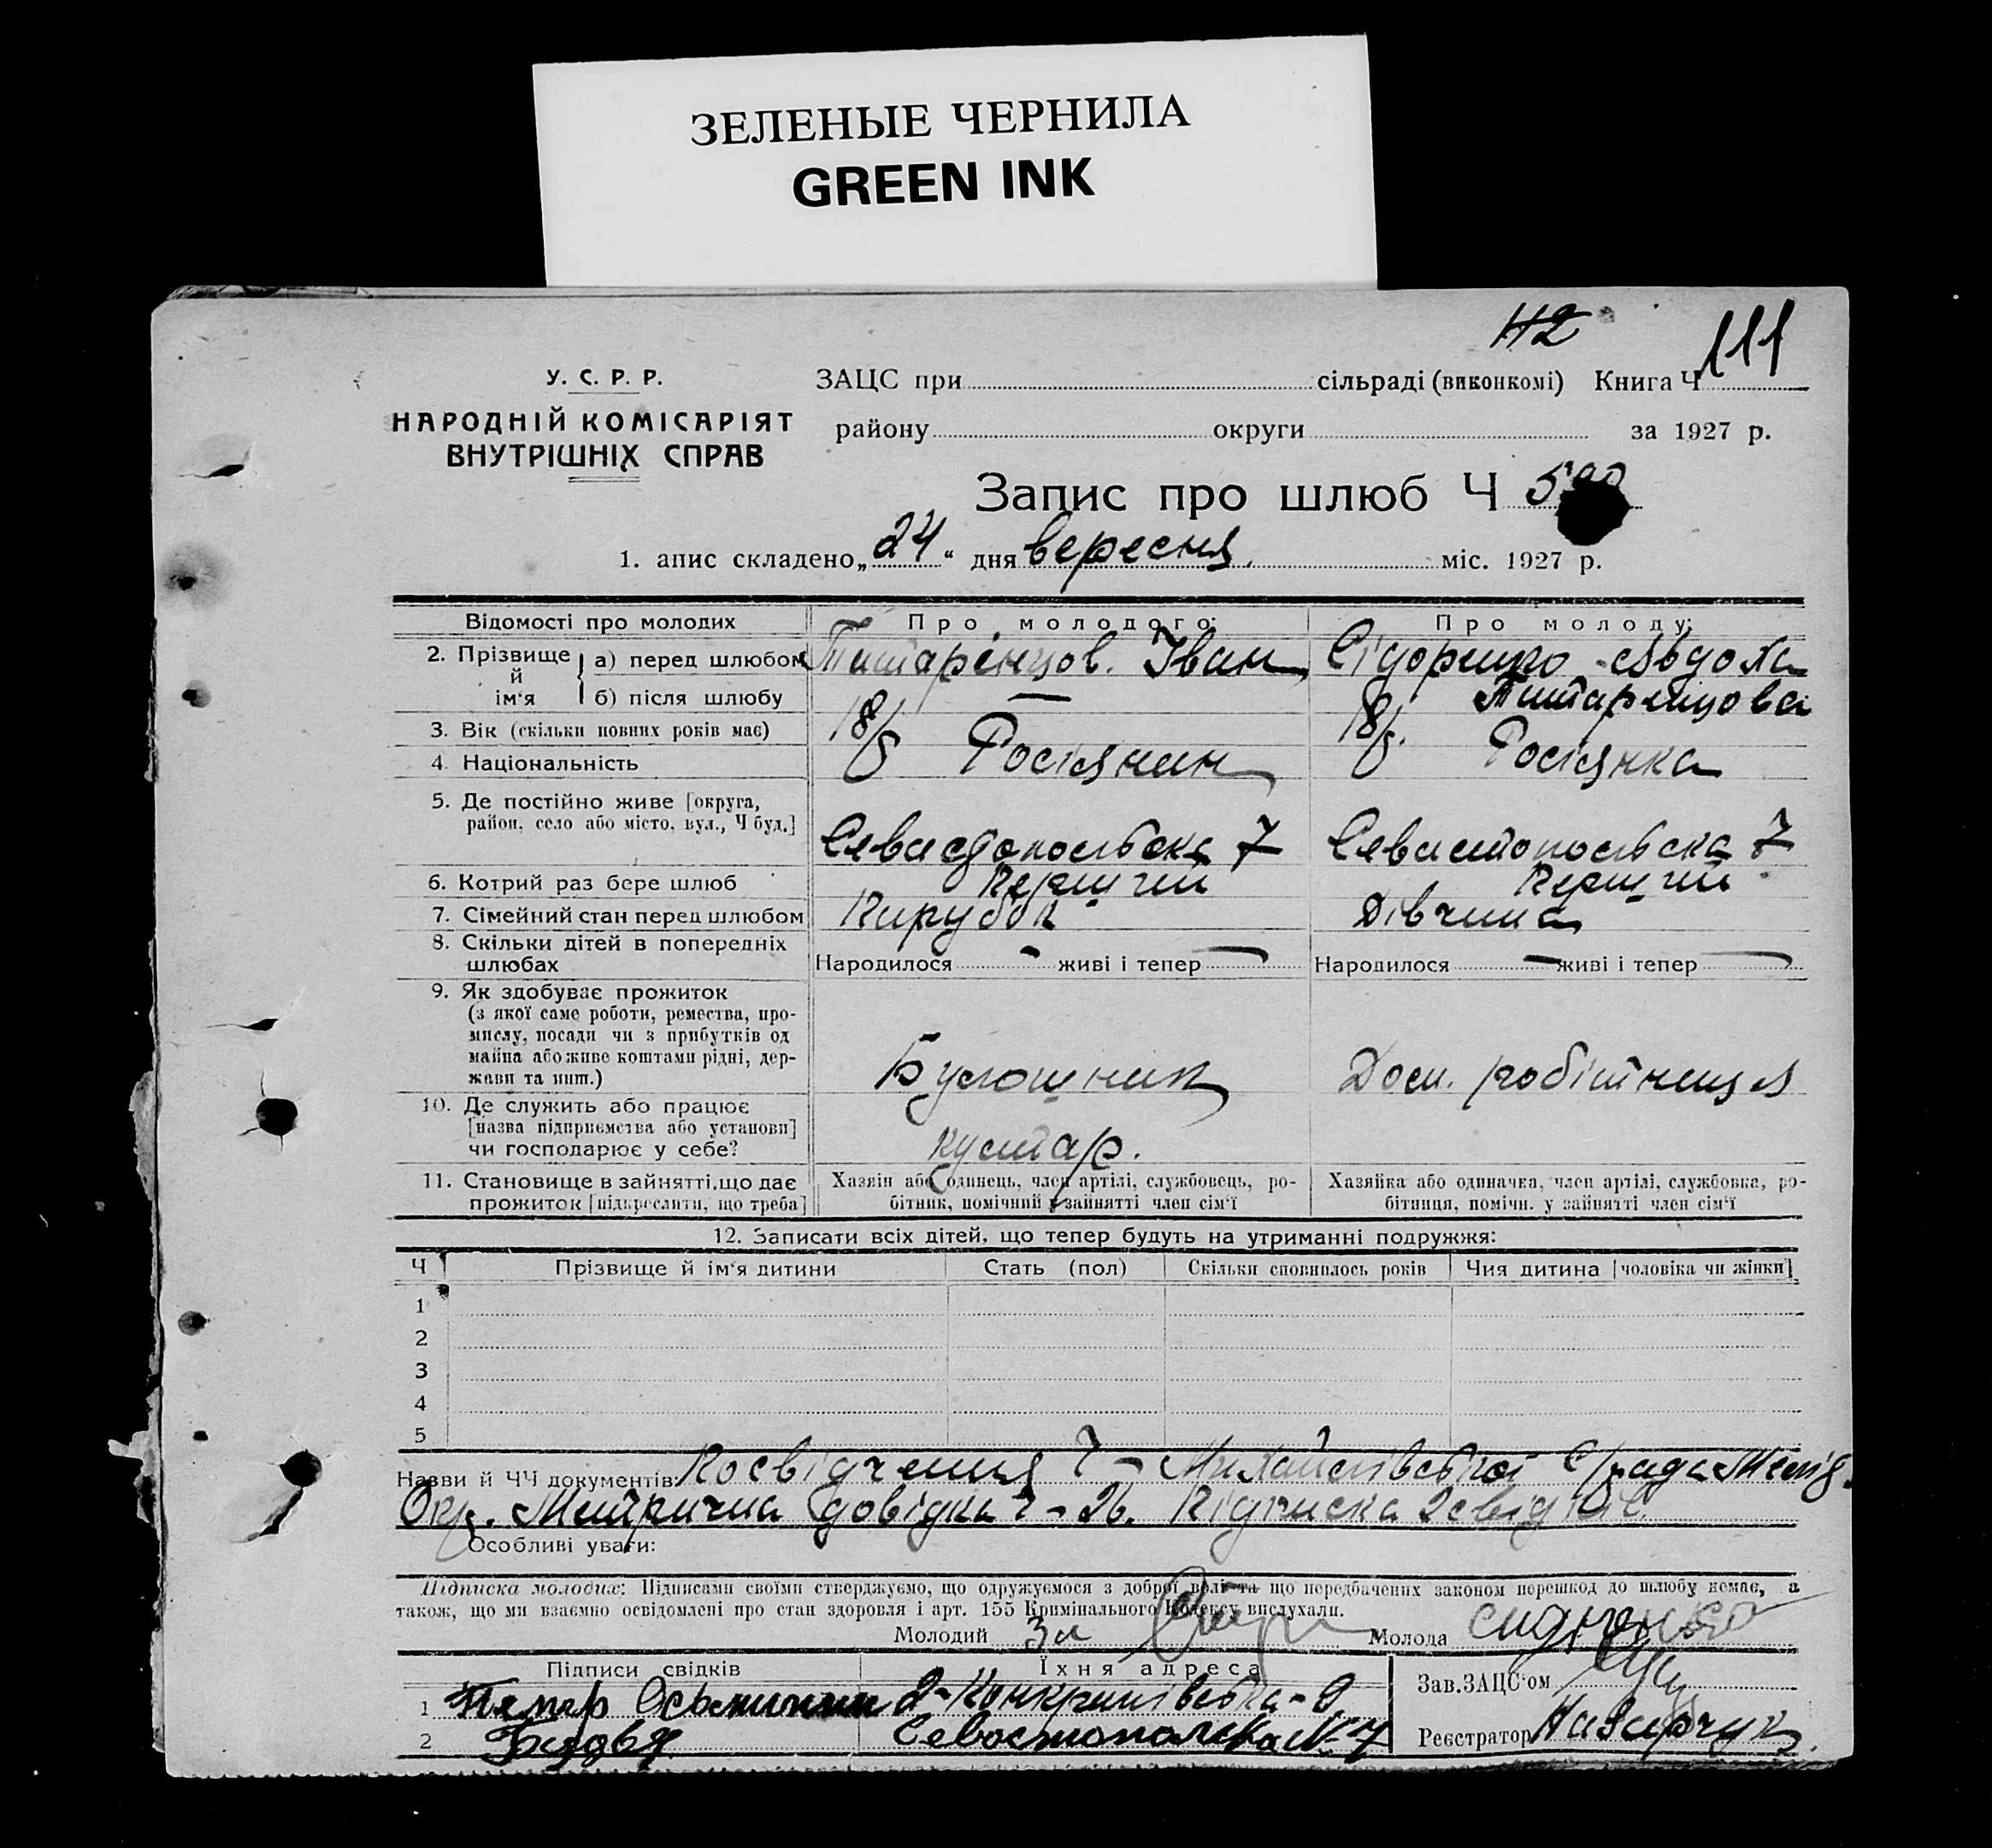 ЗЕЛЕНЫЕ ЧЕРНИЛА
GREEN INK
112
111
У. С. Р. Р.
НАРОДНІЙ КОМІСАРІЯТ
ВНУТРІШНІХ СПРАВ
ЗАЦС при сільраді (виконкомі) Книга Ч
району округи за 1927 р.
Запис про шлюб Ч
1. апис складено „24“ дня вересня міс. 1927 р.
Відомості про молодих Про молодого: Про молоду:
2. Прізвище й ім‘я а) перед шлюбом Іван Сідоренко Явдоха
б) після шлюбу —
3. Вік (скільки повних років має) 18 18
4. Національність Росіянин Росіянка
5. Де постійно живе [округа,
район, село або місто, вул., Ч буд.] Севастопольска 7 Севастопольска 7
6. Котрий раз бере шлюб Перший Перший
7. Сімейний стан перед шлюбом Парубок Дівчина
8. Скільки дітей в попередніх
шлюбах Народилося - живі і тепер — Народилося — живі і тепер —
9. Як здобуває прожиток
(з якої саме роботи, ремества, про-
мислу, посади чи з прибутків од
майна або живе коштами рідні, дер-
жави та инш.) Булошник Дом. робітниця
10. Де служить або працює
[назва підприємства або установи]
чи господарює у себе? кустар.
11. Становище в зайнятті, що дає
прожиток [підкреслити, що треба]
Хазяїн або одинець, член артілі, службовець, ро-
бітник, помічний у зайнятті член сім‘ї
Хазяйка або одиначка, член артілі, службовка, ро-
бітниця, помічн. у зайнятті член сім‘ї
12. Записати всіх дітей, що тепер будуть на утриманні подружжя:
Ч Прізвище й ім‘я дитини Стать (пол) Скільки сповнилось років Чия дитина [чоловіка чи жінки]
1
2
3
4
5
Назви й ЧЧ документів Посвідчення Ч - Михайлівської С/рада Меліт.
Окр. Метрична довідка Ч - 26. Підписка 2 свідків.
Особливі уваги:
Підписка молодих: Підписами своїми стверджуємо, що одружуємося з доброї волі та що передбачених законом перешкод до шлюбу немає, а
також, що ми взаємно освідомлені про стан здоровля і арт. 155 Кримінального Кодексу вислухали.
Молодий За Молода
Підписи свідків Їхня адреса
Зав. ЗАЦС‘ом
1
2 Севостополска № 7
Реєстратор